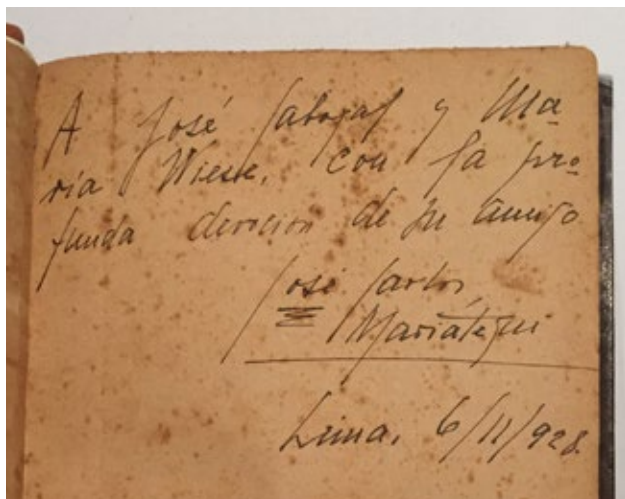 A José Sabogal y Ma
ria Wiesse, con la pro
funda devoción de su amigo
José Carlos
Mariátegui
Lima, 6/11/928